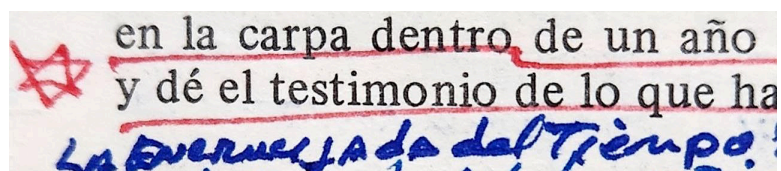 en la carpa dentro de un año
y dé el testimonio de lo que ha
La Encrucijada del Tiempo.